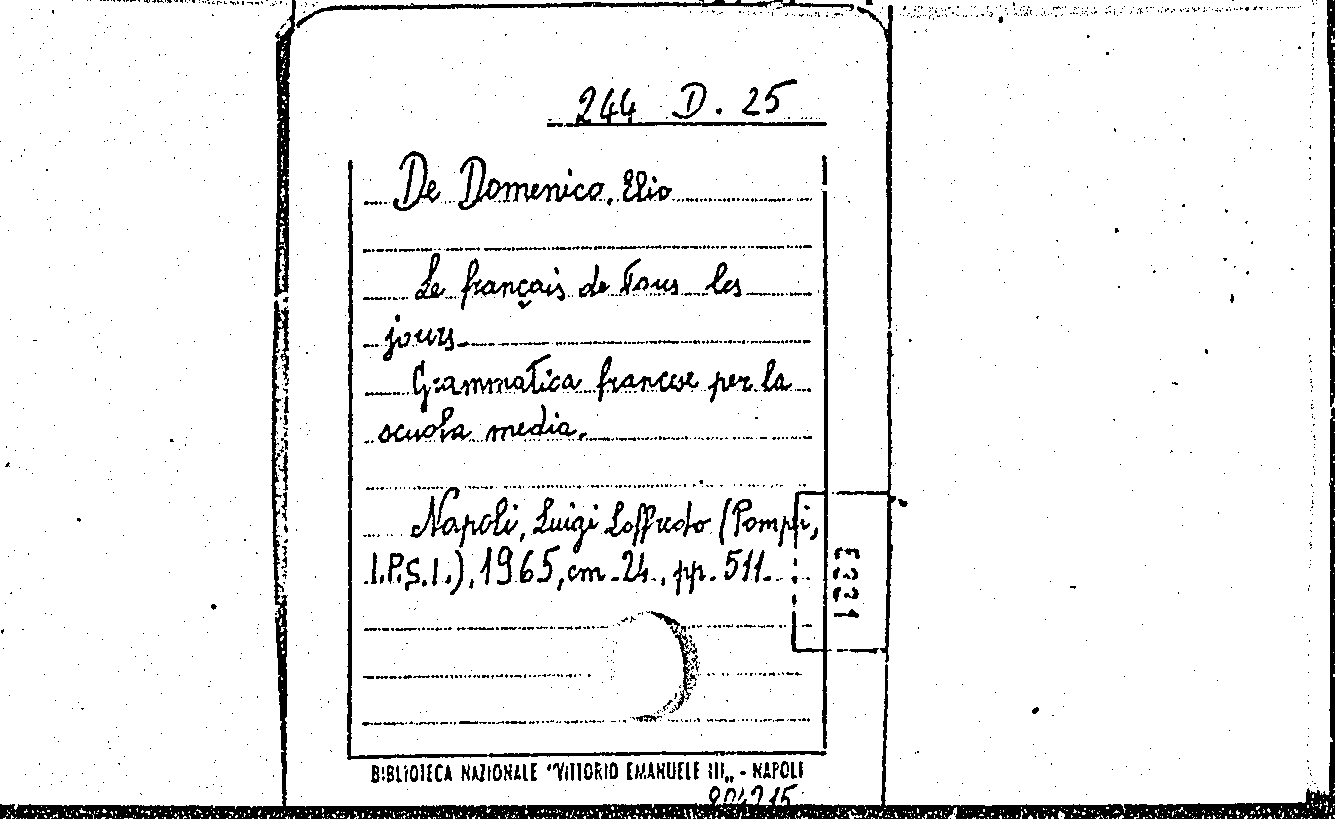 244 D. 25
De Domenico, Elio
Le français de tous les
jours.
Grammatica francese per la
scuola media.
Napoli, Luigi Loffredo (Pompei,
I.P.S.I.), 1965, cm. 24, pp. 511.
BIBLIOTECA NAZIONALE "VITTORIO EMANUELE III„ - NAPOLI